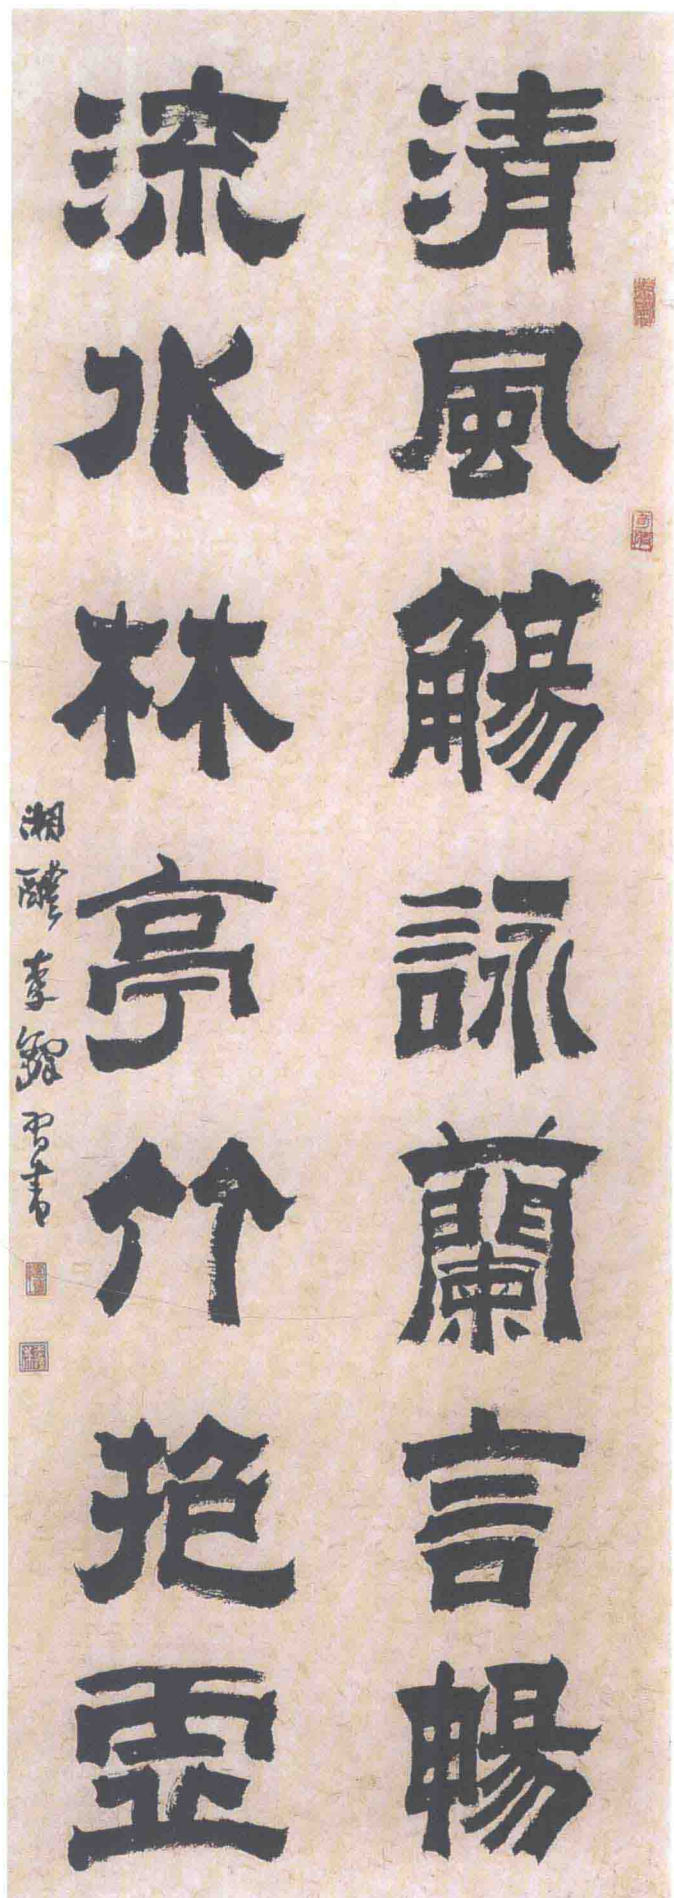 清風觴詠蘭言暢
流水林亭竹抱虛
湘醴李鐸習書